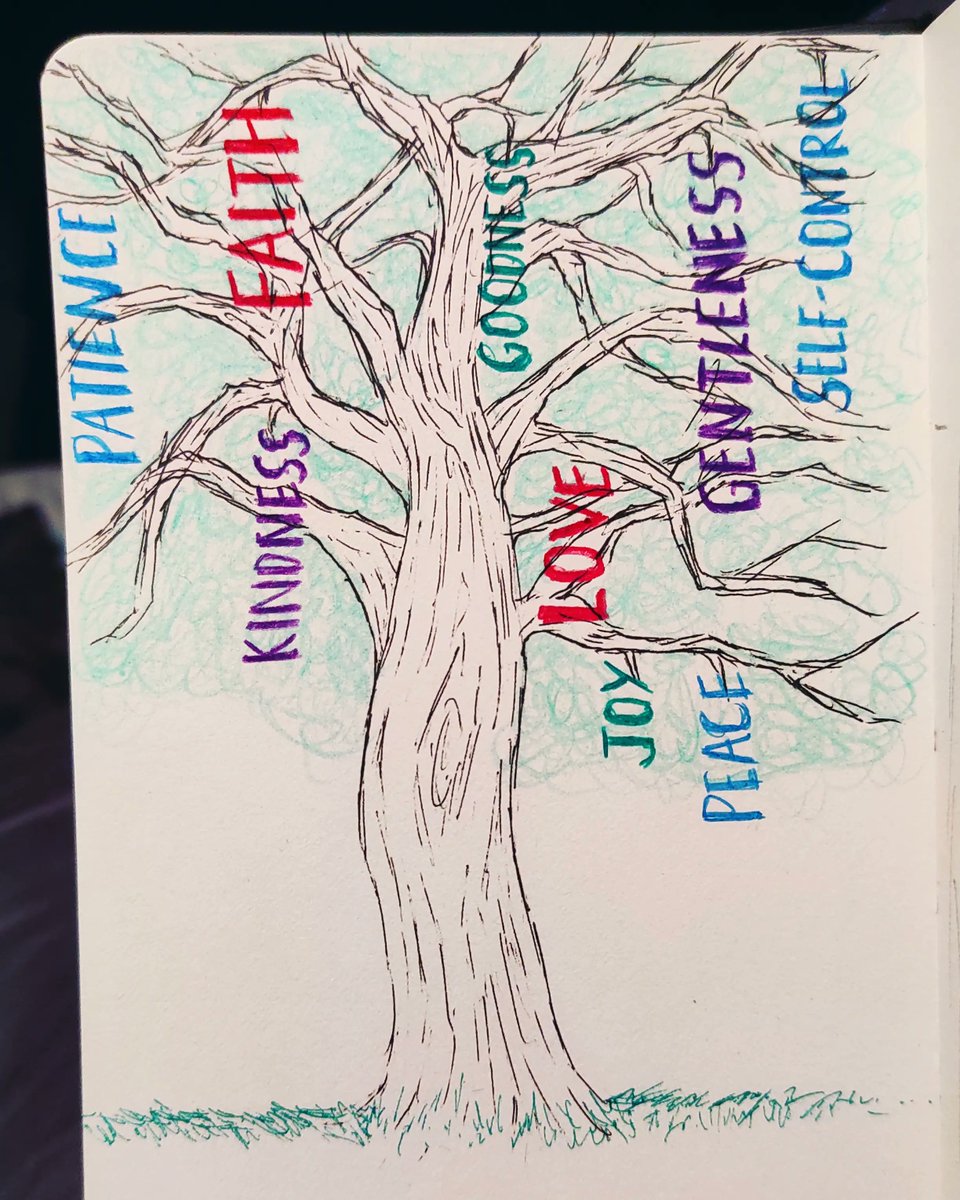 PATIENCE
FAITH
KINDNESS
GOODNESS
LOVE
JOY
PEACE
GENTLENESS
SELF-CONTROL